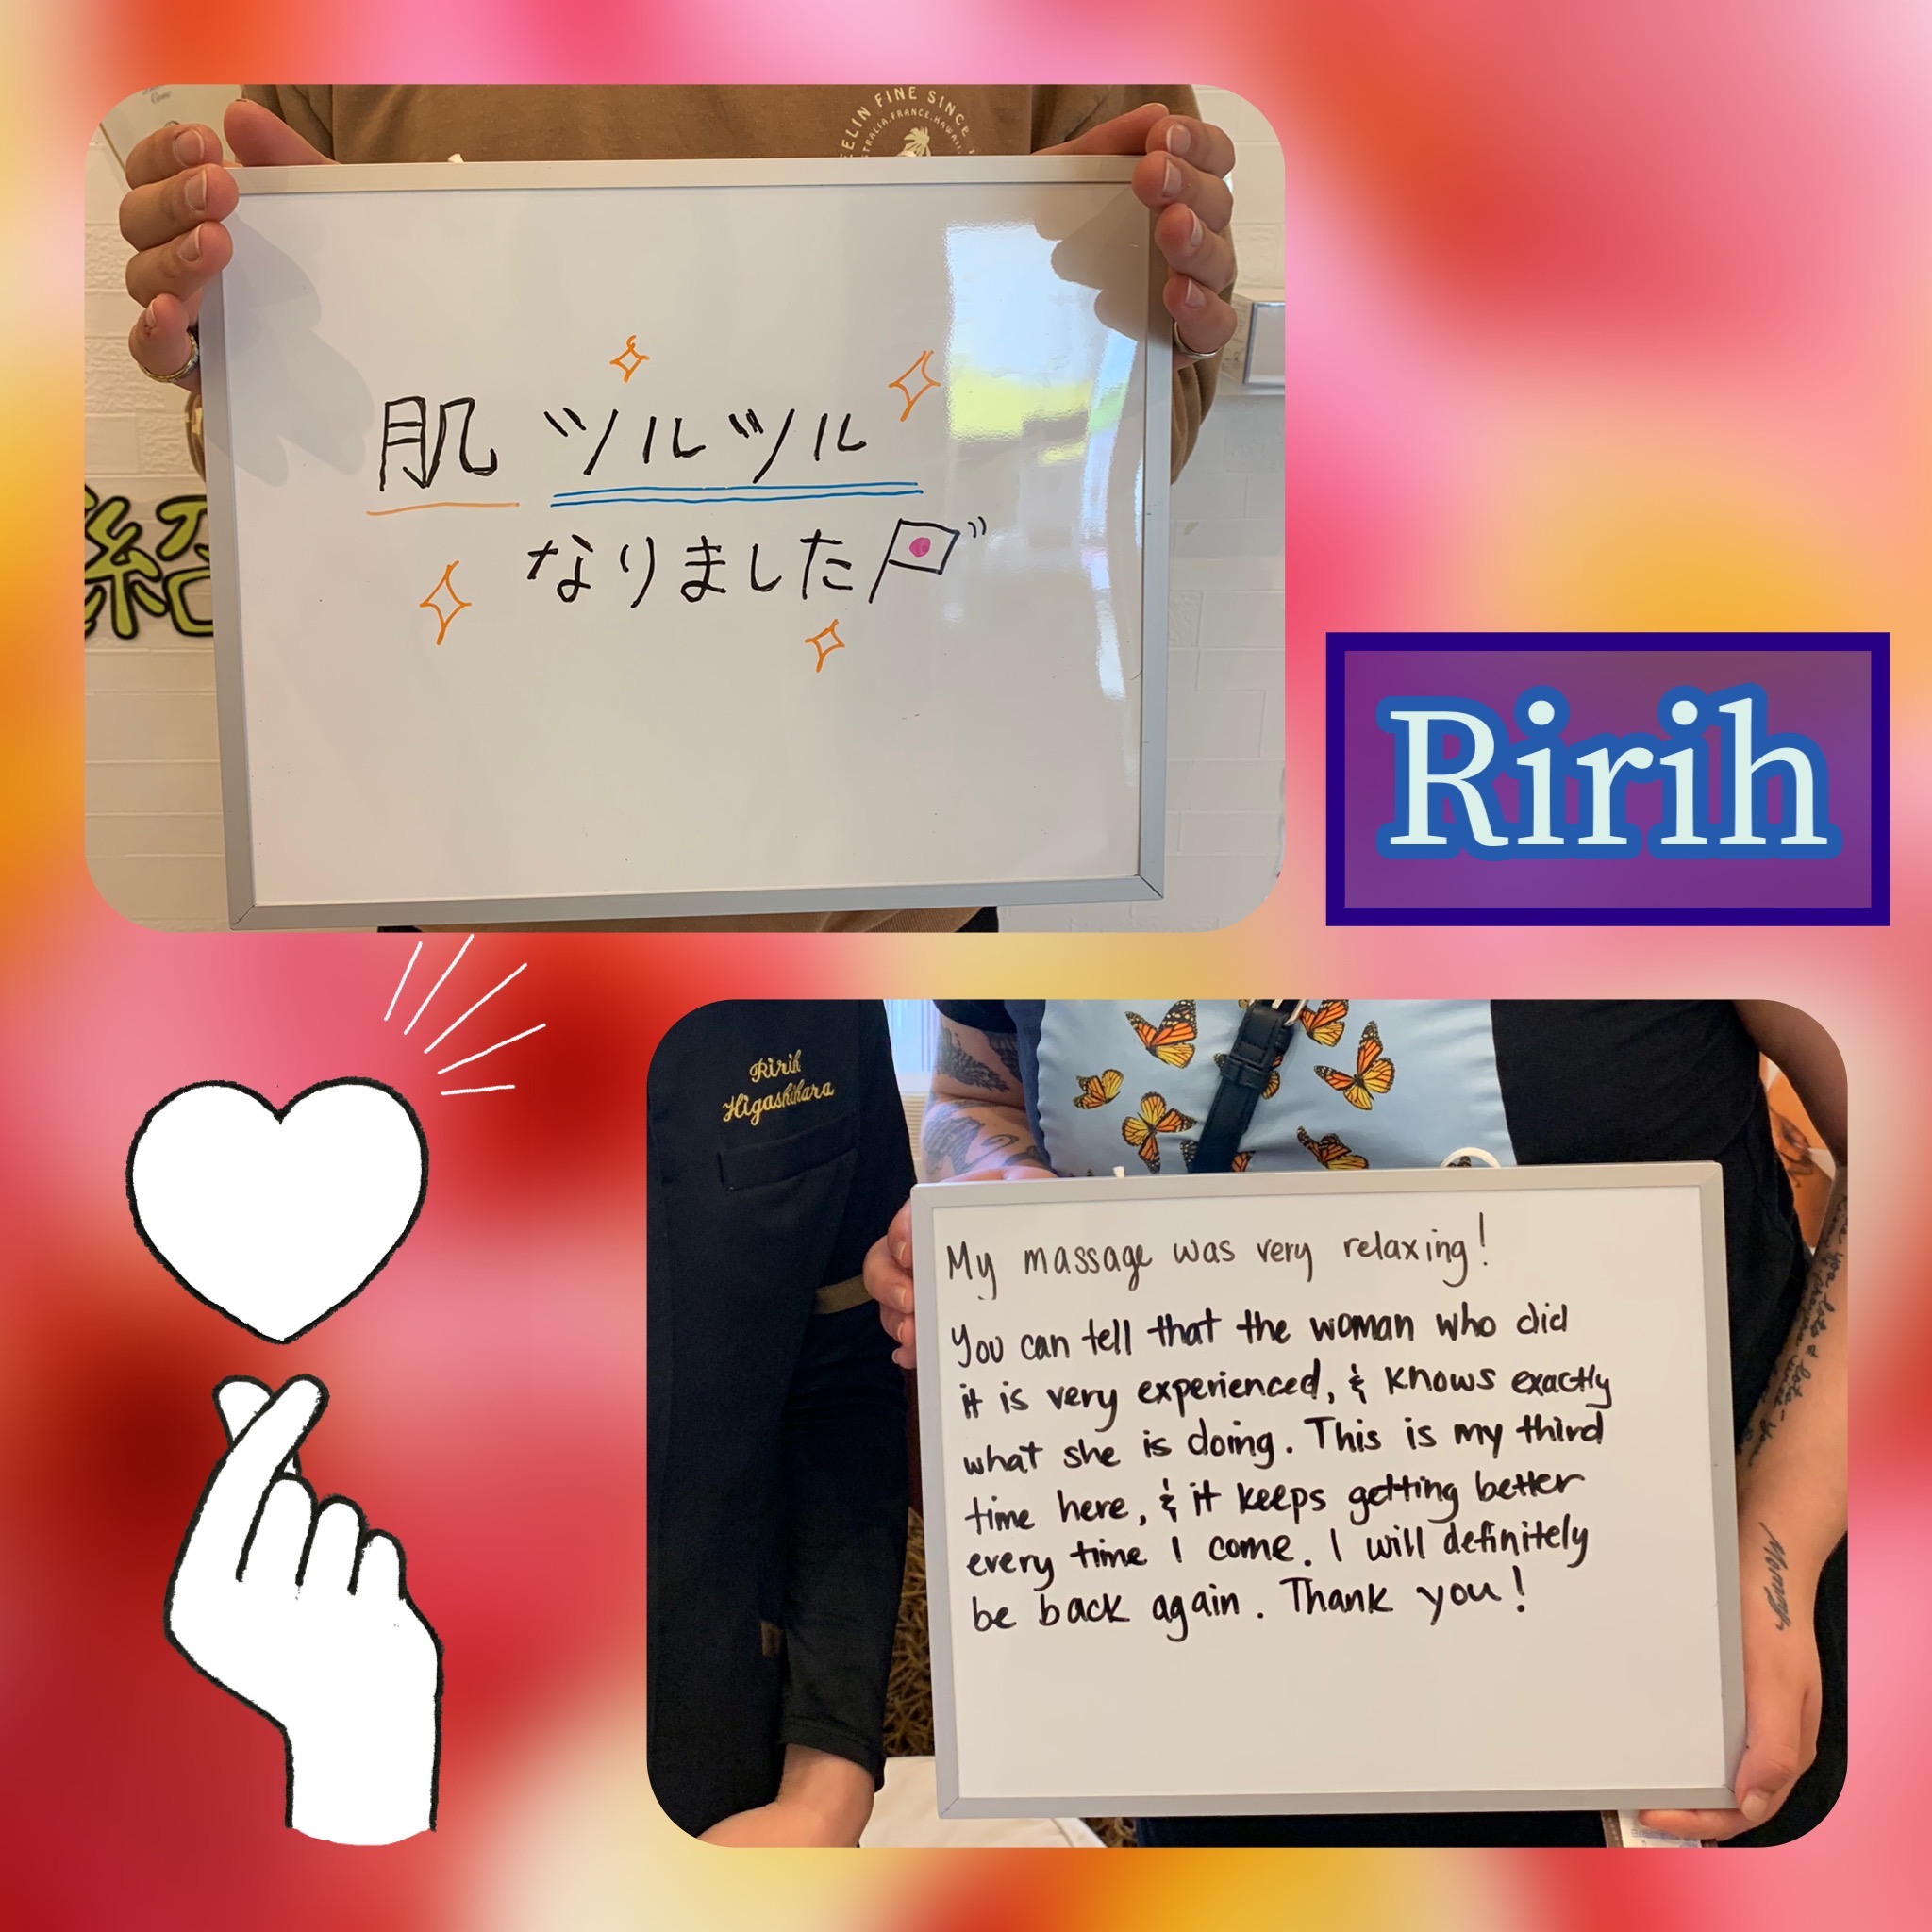 FEELIN FINE SINCE
AUSTRALIA.FRANCE.HAWAII
肌 ツルツル
なりました
Ririh
Ririh
Higashihara
My massage was very relaxing!
You can tell that the woman who did
it is very experienced, & knows exactly
what she is doing. This is my third
time here, & it keeps getting better
every time I come. I will definitely
be back again. Thank you!